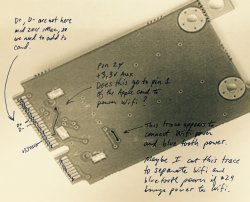 D+, D- are not here
and 2011 iMac, so
we need to add to
card.
Pin 24
+3.3V Aux
Does this go to pin 1
of the Apple card to
power Wifi?
D+
D-
+3.3V aux
This trace appears to
connect Wifi power
and blue tooth power.
Maybe I cut this trace
to separate Wifi and
bluetooth power if #24
brings power to Wifi.